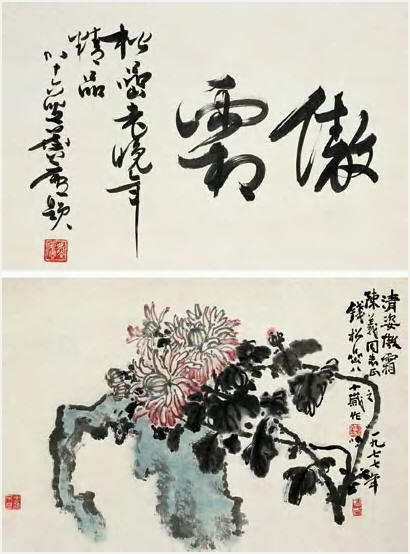 傲霜
松嵒老晚年
精品
八十六叟
題
清姿傲霜
陳義同志正之
錢松嵒八十歲作
一九七七年